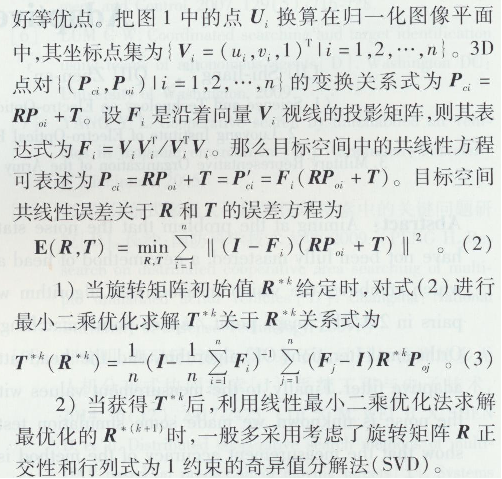 好等优点。把图 1 中的点 U_i 换算在归一化图像平面
中,其坐标点集为{V_i = (u_i, v_i, 1)^T | i = 1, 2, …, n}。3D
点对{(P_ci, P_oi) | i = 1, 2, …, n}的变换关系式为 P_ci =
RP_oi + T。设 F_i 是沿着向量 V_i 视线的投影矩阵,则其表
达式为 F_i = V_i V_i^t / V_i^t V_i。那么目标空间中的共线性方程
可表述为 P_ci = RP_oi + T = P′_ci = F_i (RP_oi + T)。目标空间
共线性误差关于 R 和 T 的误差方程为
E(R, T) = min_{R,T} ∑_{i=1}^{n} ‖(I − F_i)(RP_oi + T)‖^2 。(2)
1) 当旋转矩阵初始值 R^{*k} 给定时,对式(2)进行
最小二乘优化求解 T^{*k} 关于 R^{*k} 关系式为
T^{*k}(R^{*k}) = 1/n (I − 1/n ∑_{i=1}^{n} F_i)^{-1} ∑_{j=1}^{n} (F_j − I)R^{*k}P_oj 。(3)
2) 当获得 T^{*k} 后,利用线性最小二乘优化法求解
最优化的 R^{*(k+1)} 时,一般多采用考虑了旋转矩阵 R 正
交性和行列式为 1 约束的奇异值分解法(SVD)。